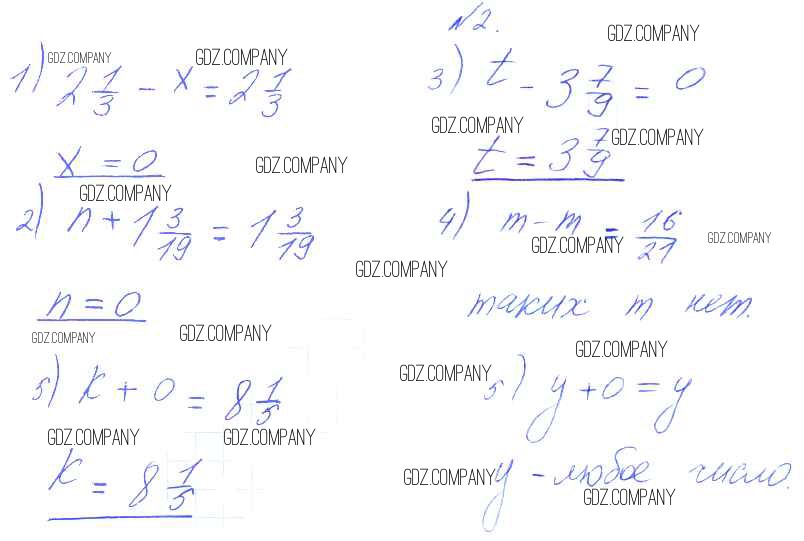 №2.
GDZ.COMPANY
1) 2 1/3 - x = 2 1/3
GDZ.COMPANY
x = 0
GDZ.COMPANY
GDZ.COMPANY
2) n + 1 3/19 = 1 3/19
n = 0
GDZ.COMPANY
GDZ.COMPANY
5) k + 0 = 8 1/5
GDZ.COMPANY
GDZ.COMPANY
k = 8 1/5
GDZ.COMPANY
3) t - 3 7/9 = 0
GDZ.COMPANY
GDZ.COMPANY
t = 3 7/9
4) m - m = 16/21
GDZ.COMPANY
GDZ.COMPANY
GDZ.COMPANY
таких m нет.
GDZ.COMPANY
GDZ.COMPANY
5) y + 0 = y
GDZ.COMPANY
y - любое число.
GDZ.COMPANY